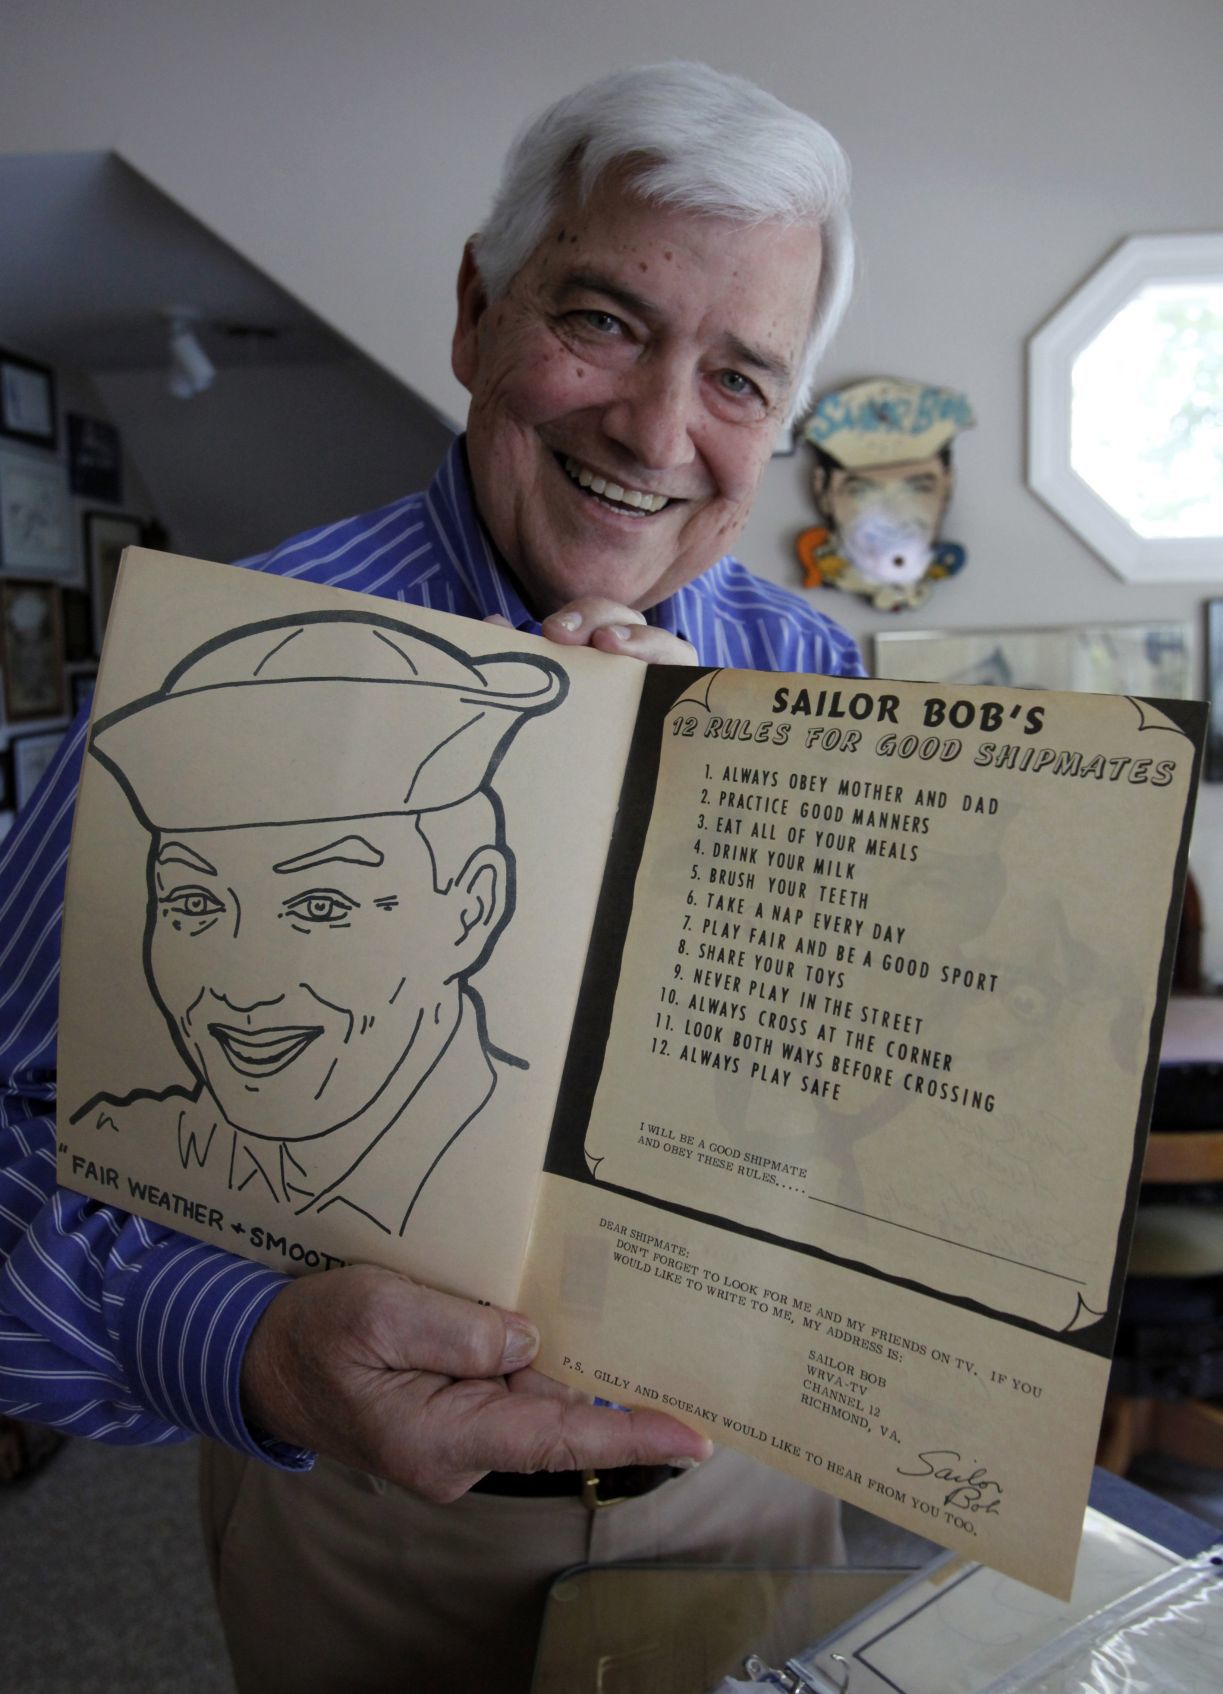 SAILOR BOB
"FAIR WEATHER + SMOOTH
"
SAILOR BOB'S
12 RULES FOR GOOD SHIPMATES
1. ALWAYS OBEY MOTHER AND DAD
2. PRACTICE GOOD MANNERS
3. EAT ALL OF YOUR MEALS
4. DRINK YOUR MILK
5. BRUSH YOUR TEETH
6. TAKE A NAP EVERY DAY
7. PLAY FAIR AND BE A GOOD SPORT
8. SHARE YOUR TOYS
9. NEVER PLAY IN THE STREET
10. ALWAYS CROSS AT THE CORNER
11. LOOK BOTH WAYS BEFORE CROSSING
12. ALWAYS PLAY SAFE
I WILL BE A GOOD SHIPMATE
AND OBEY THESE RULES.....
DEAR SHIPMATE:
DON'T FORGET TO LOOK FOR ME AND MY FRIENDS ON TV. IF YOU
WOULD LIKE TO WRITE TO ME, MY ADDRESS IS:
SAILOR BOB
WRVA-TV
CHANNEL 12
RICHMOND, VA.
Sailor
Bob
P.S. GILLY AND SQUEAKY WOULD LIKE TO HEAR FROM YOU TOO.